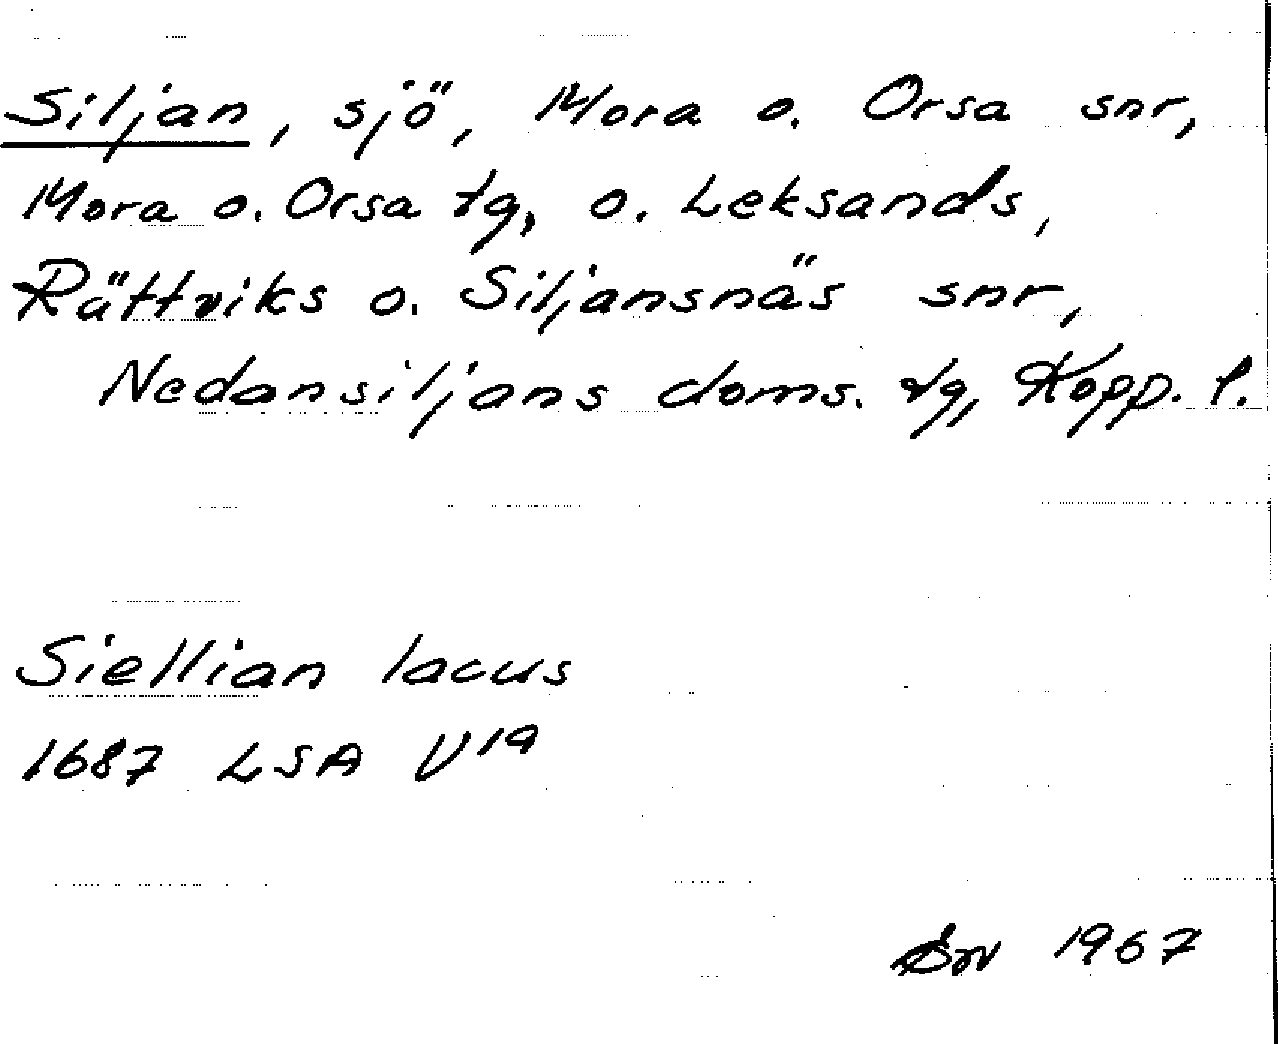 Siljan, sjö, Mora o. Orsa snr,
Mora o. Orsa tg, o. Leksands,
Rättviks o. Siljansnäs snr,
Nedansiljans doms. tg, Kopp. l.
Siellian lacus
1687 LSA V19
1967